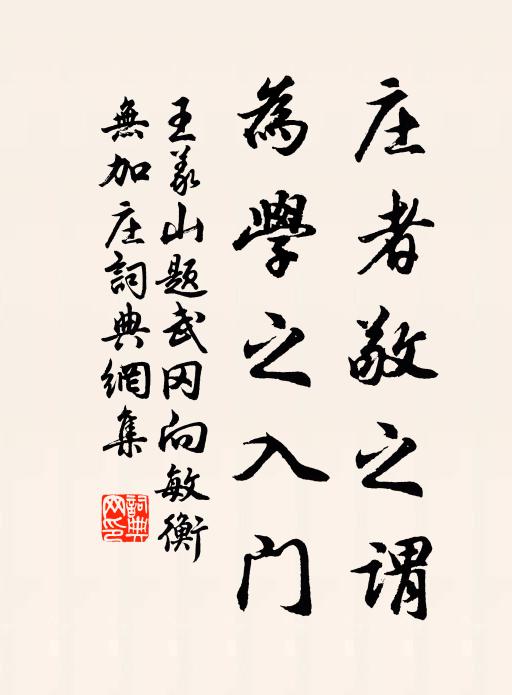 庄者敬之谓
為學之入门
王义山题武冈向敏衡
無加庄詞典網集
詞典網印